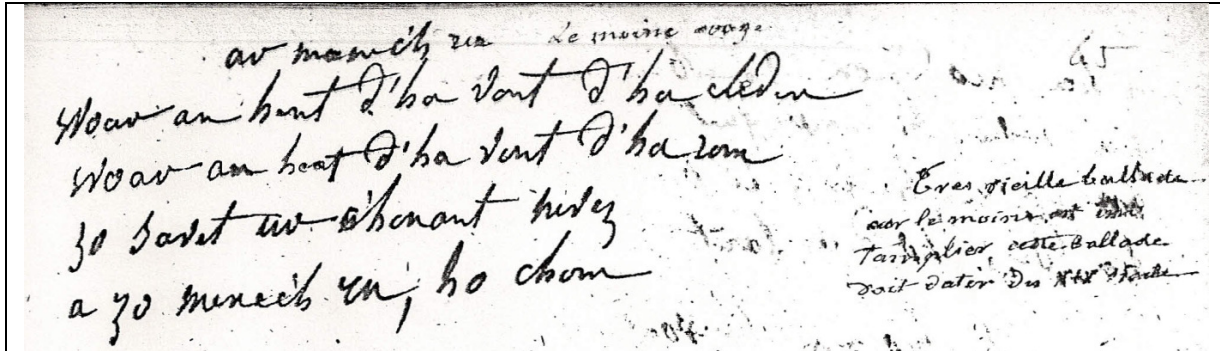 ar manec'h ru Le moine rouge
45
Woar an hent d'ha vont d'ha cleden
Woar an hent d'ha vont d'ha rom
zo savet ur c'honant nevez
a zo menec'h ru, ho chom
Tres vieille ballade
car le moine est un
Templier, cette ballade
doit dater du siecle